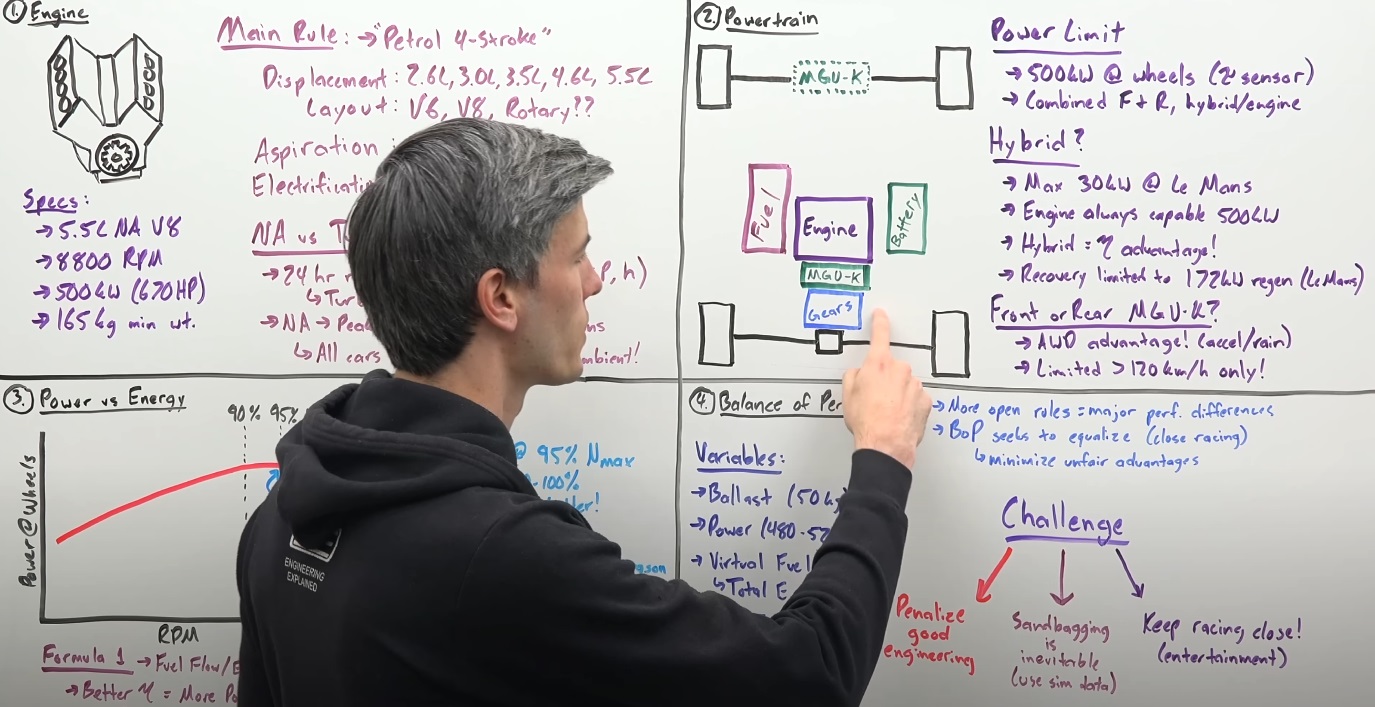 1. Engine
Main Rule: → "Petrol 4-Stroke"
Displacement: 2.6L, 3.0L, 3.5L, 4.6L, 5.5L
Layout: V6, V8, Rotary??
Aspiration :
NA vs
→ 24 hr
→ NA →
↳ All cars
P, h)
mbient!
Specs:
→ 5.5L NA V8
→ 8800 RPM
→ 500kW (670HP)
→ 165kg min wt.
2. Powertrain
MGU-K
Fuel
Engine
Battery
MGU-K
Gears
Power Limit
→ 500kW @ wheels (τ sensor)
→ Combined F + R, hybrid/engine
Hybrid?
→ Max 30kW @ Le Mans
→ Engine always capable 500kW
→ Hybrid = η advantage!
→ Recovery limited to 172kW regen (Le Mans)
Front or Rear MGU-K?
→ AWD advantage! (accel/rain)
→ Limited >120km/h only!
3. Power vs Energy
90% 95%
Power@Wheels
RPM
@ 95% Nmax
-100%
Formula 1 → Fuel Flow/E
→ Better η = More Po
ENGINEERING
EXPLAINED
4. Balance of Per
→ More open rules = major perf. differences
→ BoP seeks to equalize (close racing)
↳ minimize unfair advantages
Variables:
→ Ballast (50k
→ Power (480-52
→ Virtual Fuel
↳ Total E
Challenge
Penalize
good
engineering
Sandbagging
is
inevitable
(use sim data)
Keep racing close!
(entertainment)